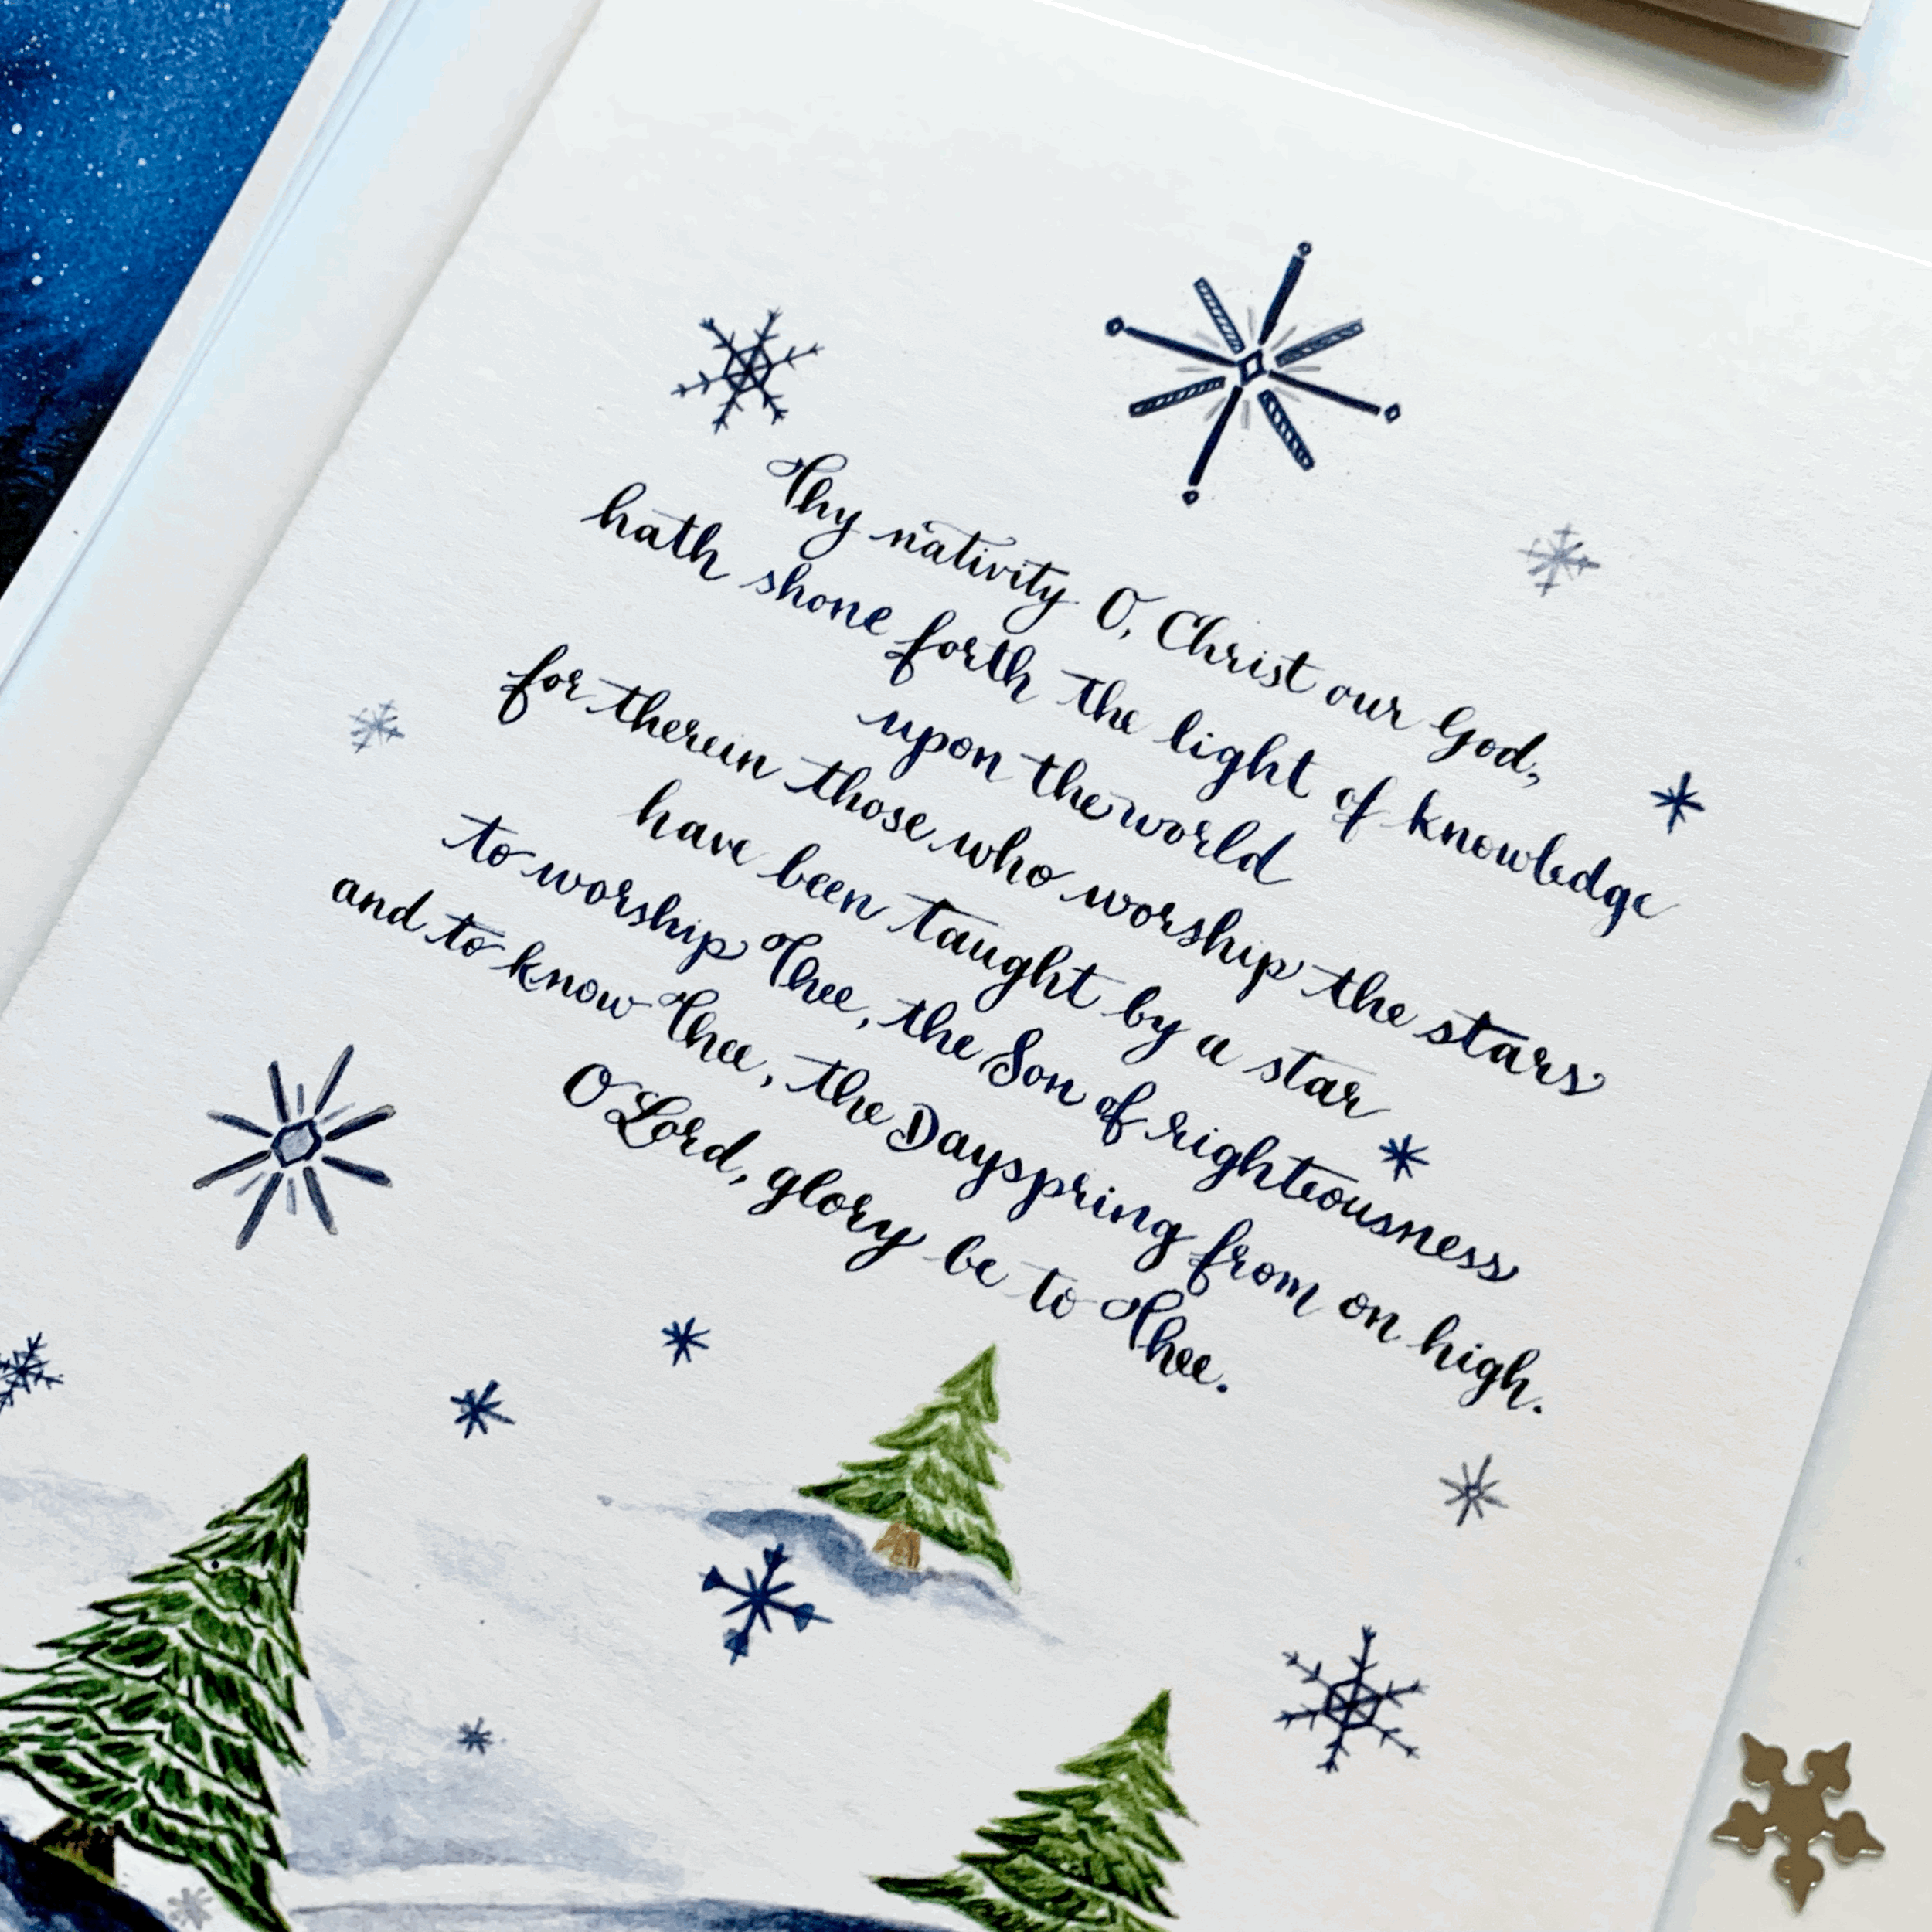 Thy nativity O, Christ our God,
hath shone forth the light of knowledge
upon the world
for therein those who worship the stars
have been taught by a star
to worship Thee, the Son of righteousness
and to know Thee, the Dayspring from on high.
O Lord, glory be to Thee.